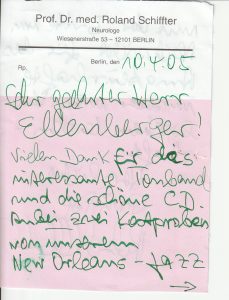 Prof. Dr. med. Roland Schiffter
Neurologe
Wiesenerstraße 53 – 12101 BERLIN
Rp.
Berlin, den 10.4.05
Sehr geehrter Herr
Ellenberger!
Vielen Dank für das
interessante Tonband
und die schöne C.D.
Anbei zwei Kostproben
von unserem
New Orleans – Jazz
→